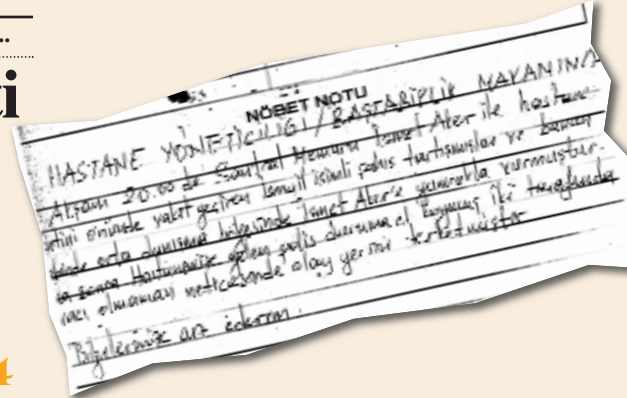 NÖBET NOTU
HASTANE YÖNETİCİLİĞİ / BAŞTABİPLİK MAKAMINA
Akşam 20.00 de Santral Memuru İsmet Ater ile hastane
önünde vakit geçiren İsmail isimli şahıs tartışmışlar ve
orta bölgesinde İsmet Ater'e yumrukla vurmuştur.
sonra Hastanemize gelen polis duruma el koymuş iki tarafında
olmaması neticesinde olay yerini terketmiştir
Bilgilerinize arz ederim.
ti
4